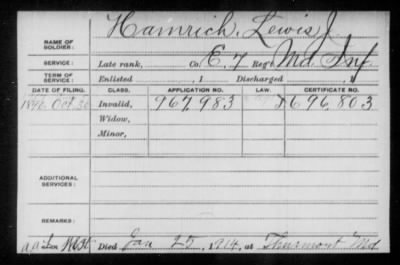 Hamrich, Lewis J.
NAME OF SOLDIER:
SERVICE: Late rank, Co. E. 7 Reg't Md. Inf.
TERM OF SERVICE: Enlisted , 1 Discharged , 1
DATE OF FILING. CLASS. APPLICATION NO. LAW. CERTIFICATE NO.
Oct. 30 Invalid, 967,983 696,803
Widow,
Minor,
ADDITIONAL SERVICES:
REMARKS:
Died Jan 25, 1914, at Thurmont Md